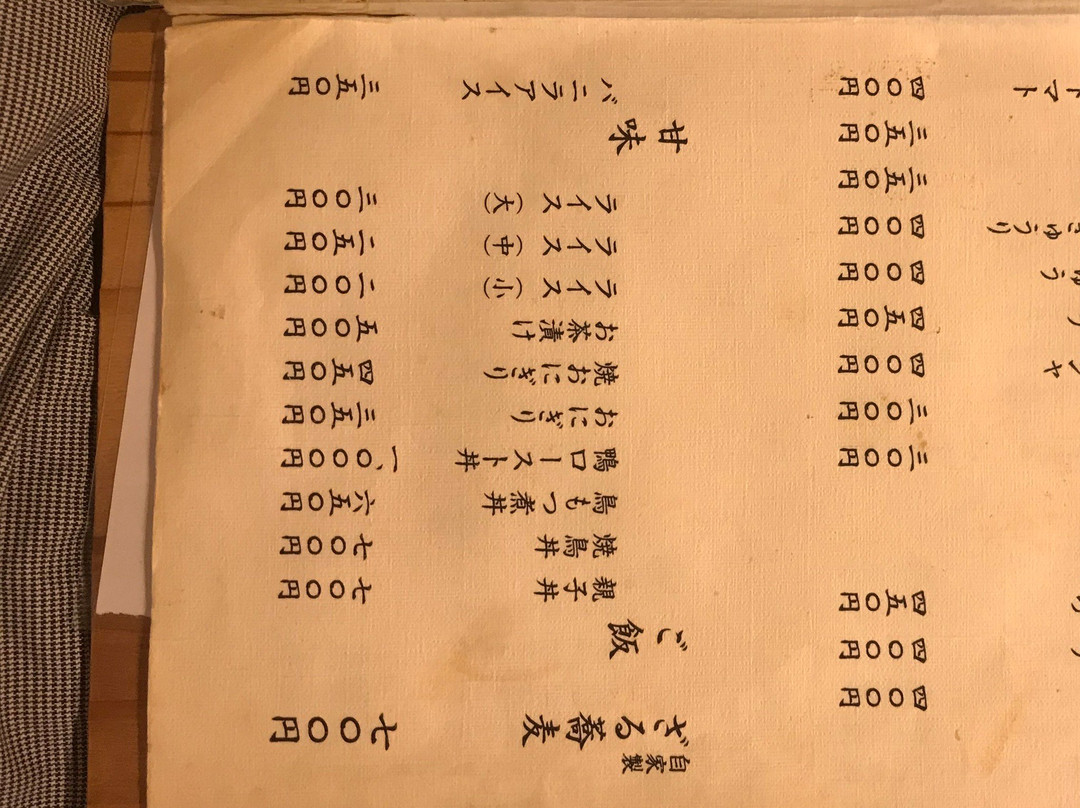 四〇〇円
四〇〇円
四五〇円
三〇〇円
三〇〇円
ヤ 四〇〇円
四五〇円
ゅう 四〇〇円
きゅうり 四〇〇円
三五〇円
三五〇円
トマト 四〇〇円
自家製
ざる蕎麦 七〇〇円
ご飯
親子丼 七〇〇円
焼鳥丼 七〇〇円
鳥もつ煮丼 六五〇円
鴨ロースト丼 一、〇〇〇円
おにぎり 三五〇円
焼おにぎり 四五〇円
お茶漬け 五〇〇円
ライス(小) 二〇〇円
ライス(中) 二五〇円
ライス(大) 三〇〇円
甘味
バニラアイス 三五〇円